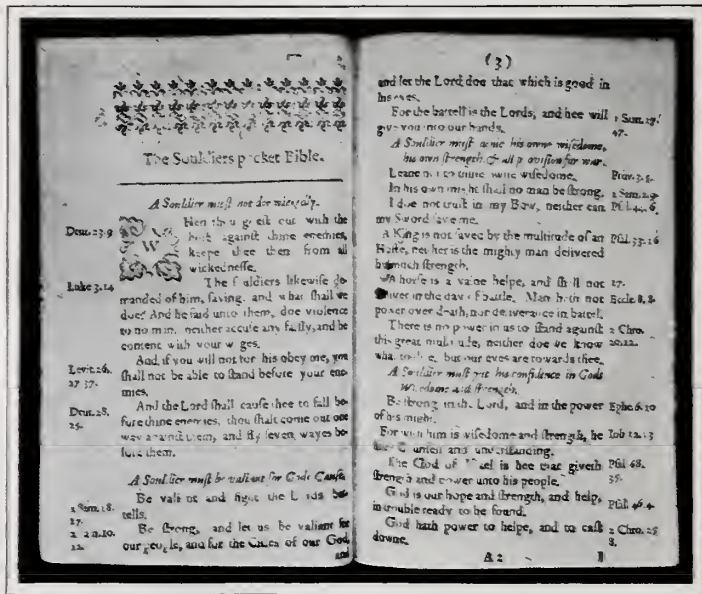 The Souldiers pocket Bible.
A Souldier must not doe wickedly.
Deut. 23.9
WHen thou goest out with the
host against thine enemies,
keepe thee then from all
wickednesse.
Luke 3.14
The souldiers likewise de-
manded of him, saying, and what shall we
doe? And he said unto them, doe violence
to no man, neither accuse any falsly, and be
content with your wages.
Levit. 26.
27 37.
And, if you will not for this obey me, you
shall not be able to stand before your ene-
mies.
Deut. 28.
25.
And the Lord shall cause thee to fall be-
fore thine enemies, thou shalt come out one
way against them, and fly seven wayes be-
fore them.
A Souldier must be valiant for Gods Cause.
1 Sam. 18.
17.
Be valiant and fight the Lords bat-
tells.
2 Sam. 10.
12.
Be strong, and let us be valiant for
our people, and for the Cities of our God,
and
(3)
and let the Lord doe that which is good in
his eyes.
For the battell is the Lords, and hee will
give you into our hands.
1 Sam. 17.
47.
A Souldier must denie his owne wisedome,
his own strength, & all provision for war.
Leane not to thine owne wisedome.
Prov. 3. 5.
In his own might shall no man be strong.
1 Sam. 2.9
I doe not trust in my Bow, neither can
my Sword save me.
Psal. 44. 6
A King is not saved by the multitude of an
Hoste, neither is the mighty man delivered
by much strength.
Psal. 33.16
A horse is a vaine helpe, and shall not
17.
deliver in the day of battle. Man hath not
Eccle. 8, 8.
power over death, nor deliverance in battel.
There is no power in us to stand against
2 Chro.
this great multitude, neither doe we know
20.12.
what to doe, but our eyes are towards thee.
A Souldier must put his confidence in Gods
Wisedome and strength.
Be strong in the Lord, and in the power
of his might.
Ephe. 6.10
For with him is wisedome and strength, he
Iob 12.13
hath Counsell and understanding.
The God of Israel is hee that giveth
strength and power unto his people.
Psal 68.
35.
God is our hope and strength, and help,
in trouble ready to be found.
Psal. 46.
God hath power to helpe, and to cast
downe.
2 Chro. 25
8.
A 2